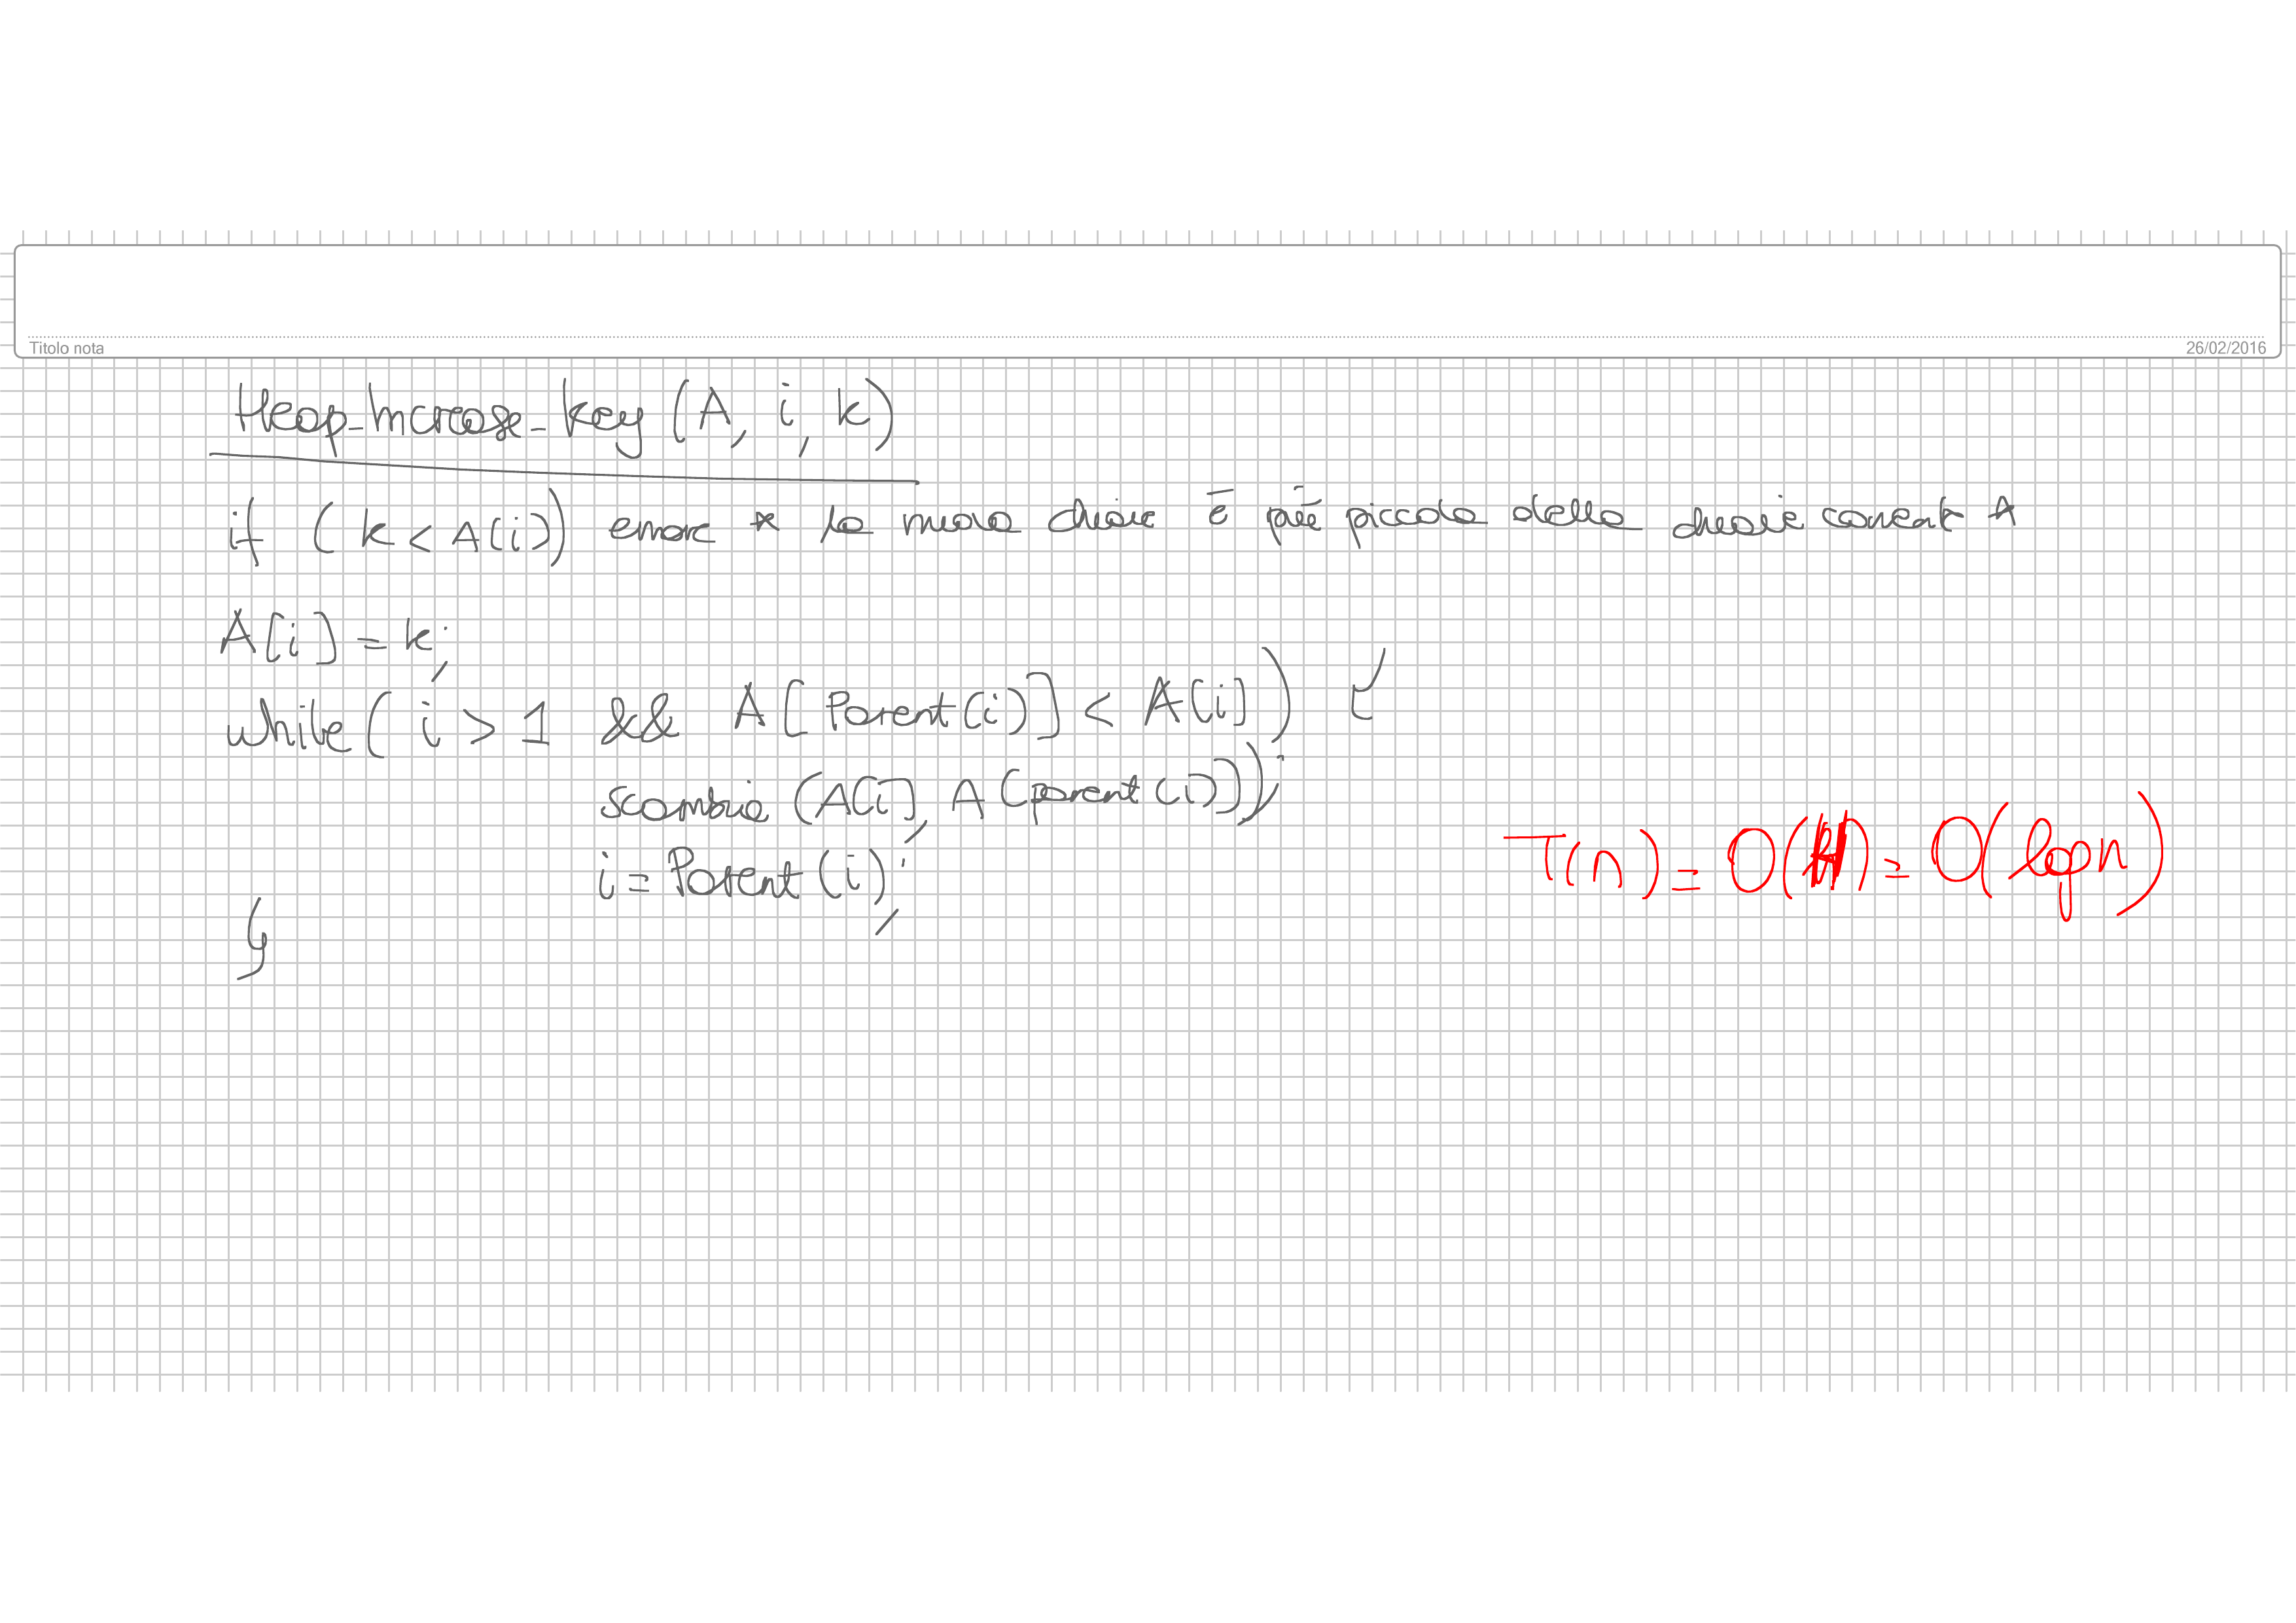 Titolo nota
26/02/2016
Heap-Increase-Key (A, i, k)
if (k < A[i]) errore * la nuova chiave è più piccola della chiave corrente *
A[i] = k;
while ( i > 1 && A[Parent(i)] < A[i]) {
scambia (A[i], A[parent(i)]);
i = Parent(i);
}
T(n) = O(H) = O(log n)